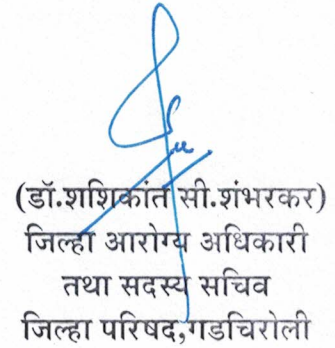 (डॉ.शशिकांत सी.शंभरकर)
जिल्हा आरोग्य अधिकारी
तथा सदस्य सचिव
जिल्हा परिषद,गडचिरोली